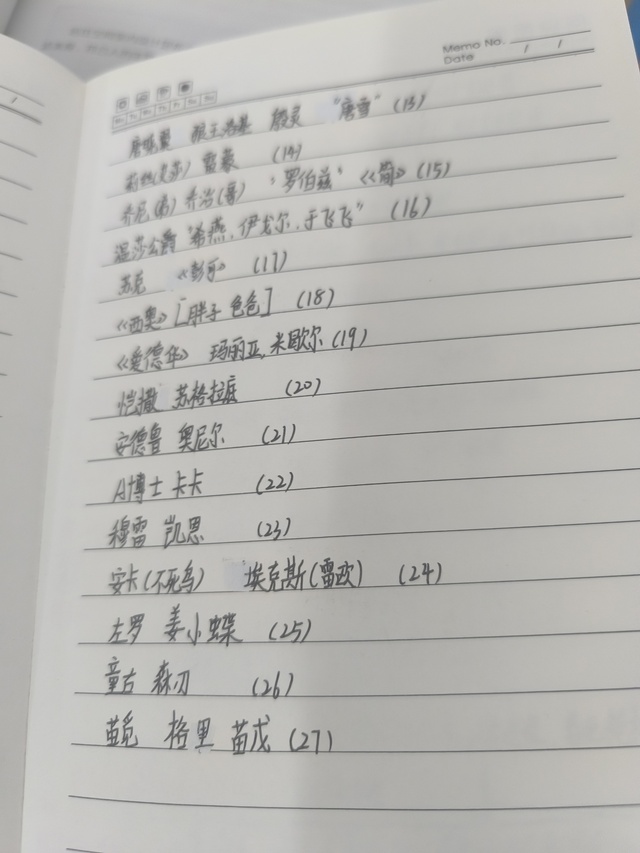 Memo No.
Date / /
狼王洛基 殷灵 "唐雪" (13)
(14)
乔尼(弟) 乔治(哥) "罗伯兹" 《简》(15)
温莎公爵 "希燕, 伊戈尔, 于飞飞" (16)
苏克 《彭可》 (17)
《西奥》 [胖子 色色] (18)
《爱德华》 玛丽亚, 米歇尔 (19)
恺撒 苏格拉底 (20)
安德鲁 奥尼尔 (21)
A博士 卡卡 (22)
穆雷 凯恩 (23)
安卡(不死鸟) 埃克斯(雷欧) (24)
左罗 姜小蝶 (25)
童古 森刃 (26)
格里 苗戊 (27)